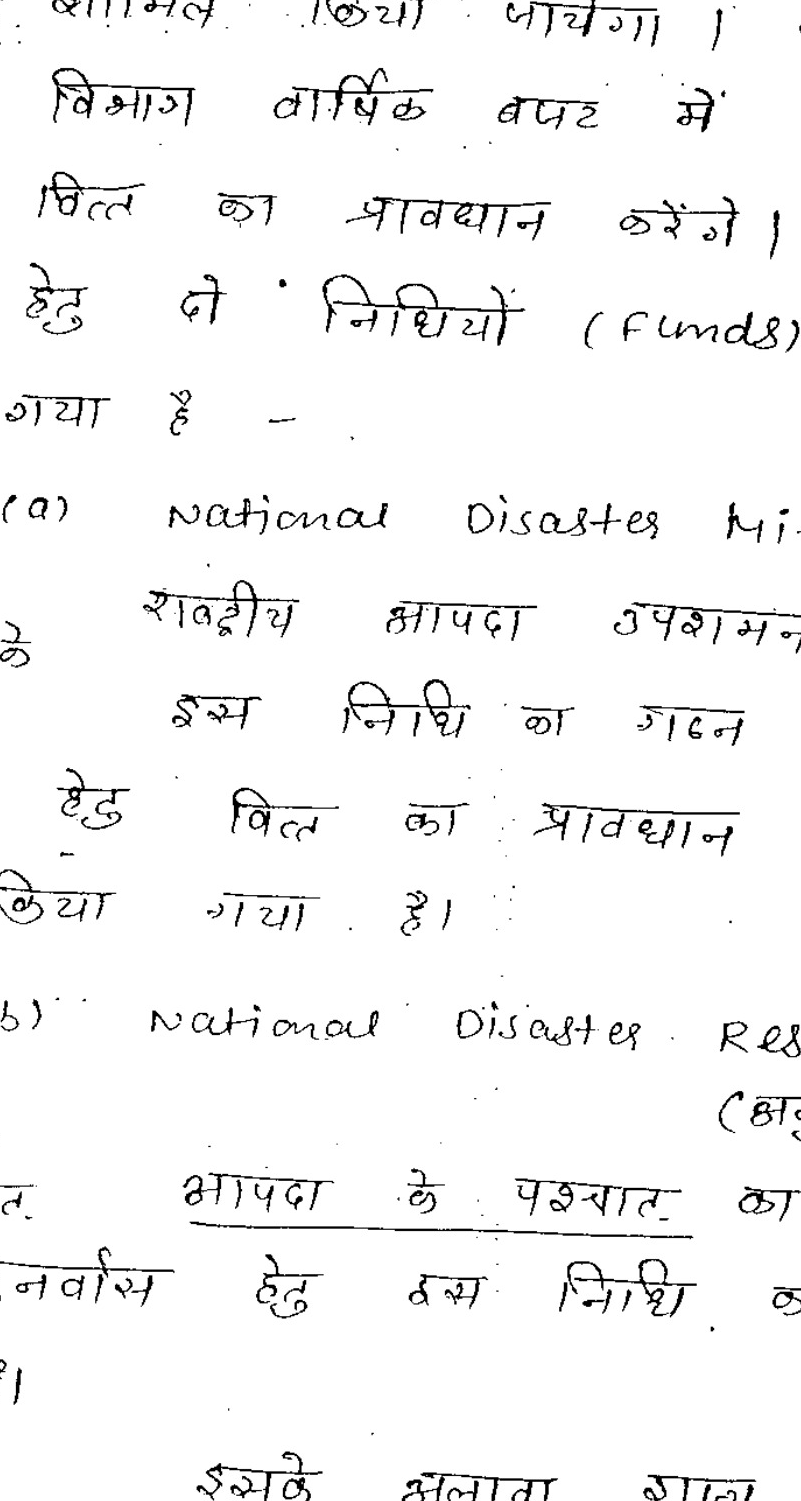 शामिल किया जायेगा ।
विभाग वार्षिक बजट में
वित्त का प्रावधान करेंगे ।
हेतु दो निधियों (Funds)
गया है -
(a) National Disaster Mi
के राष्ट्रीय आपदा उपशमन
इस निधि का गठन
हेतु वित्त का प्रावधान
किया गया है।
b) National Disaster Res
(अनु
त. आपदा के पश्चात् का
नर्वास हेतु इस निधि क
है।
इसके अलावा